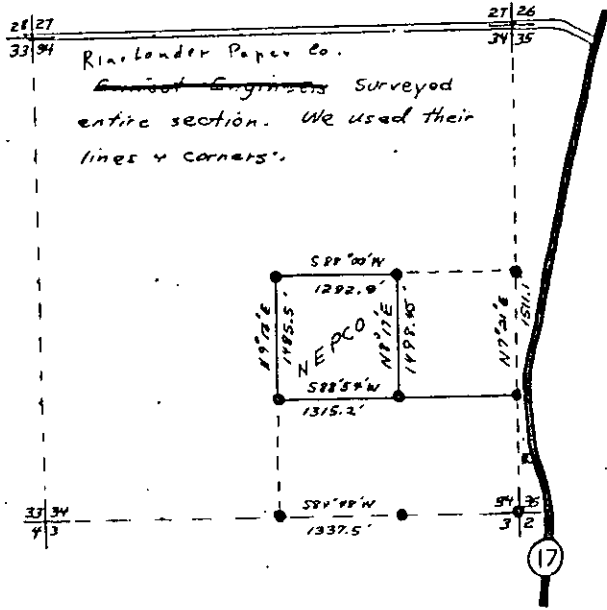 28 27
33 34
27 26
34 35
Rinelander Paper Co.
Surveyed
entire section. We used their
lines & corners.
S 88° 00' W
1292.9'
N 9° 12' E
1485.5'
NEPCO
N 8° 17' E
1498.45'
N 7° 21' E
1511.1'
S 88° 54' W
1315.2'
33 34
4 3
S 89° 48' W
1337.5'
34 35
3 2
17